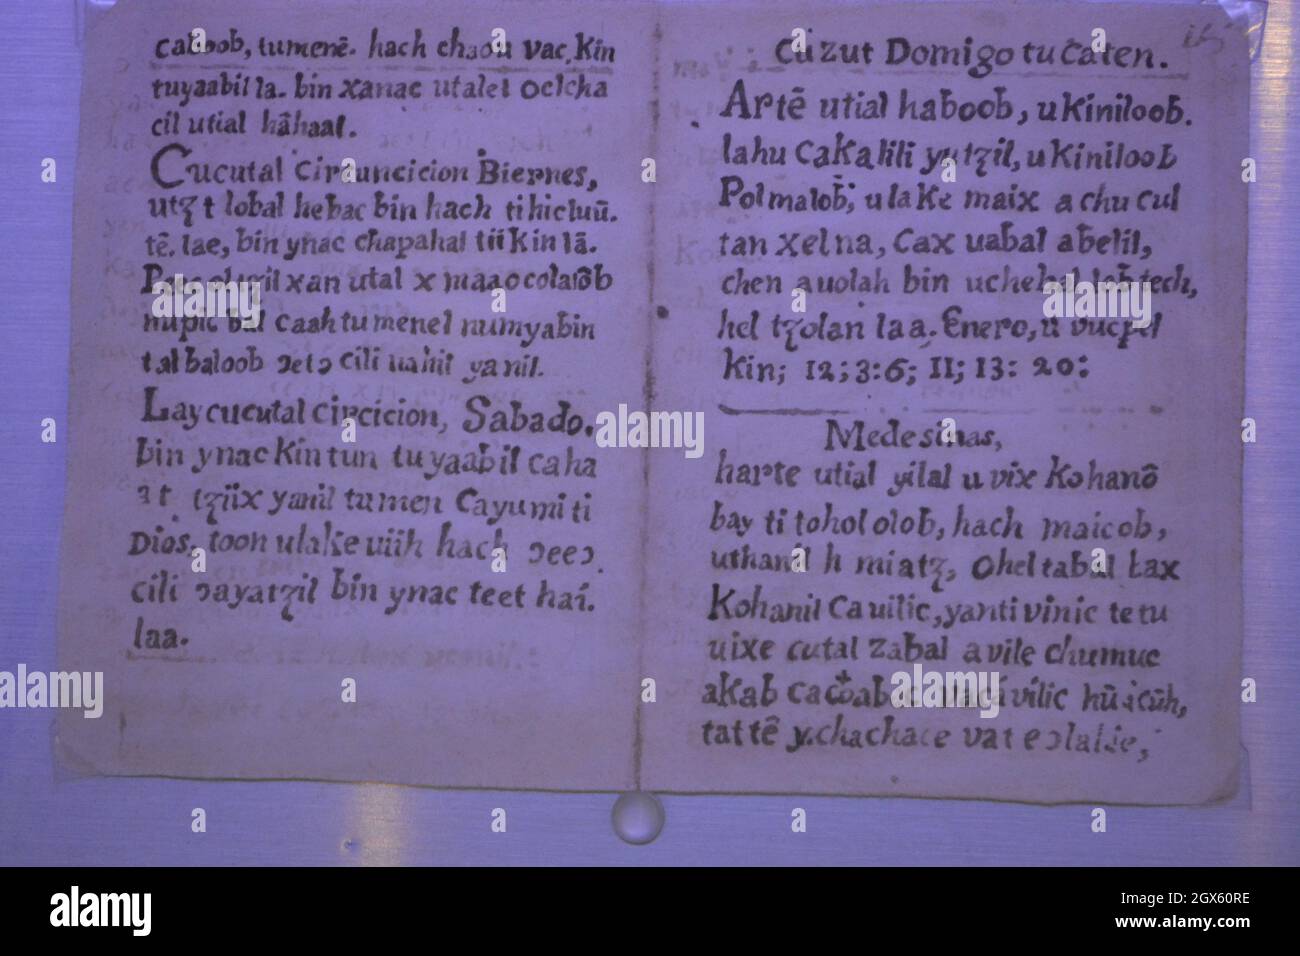 caboob, tumenē. hach chaou vac, Kin
tuyaabil la. bin xanac utalel oclcha
cil utial hāhaal.
Cucutal Circuncicion Biernes,
utz t lobal he bac bin hach ti hicluū.
tē. lae, bin ynac chapahal tii kin lā.
xan utal x maaocolalōb
nupic bal caah tu menel numyabin
tal baloob ɔetɔ cili yanil.
Lay cucutal circicion, Sabado.
bin ynac Kin tun tu yaabil caha
tziix yanil tumen Cayumi ti
Dios. toon ulake viih hach ɔeeɔ
cili ɔayatzil bin ynac teet hai.
laa.
Cu zut Domigo tu caten.
Artē utial haboob, u kiniloob.
lahu cakalili yutzil, u kiniloob
Polmalob; u lake maix a chu cul
tan xel na, Cax uabal abelil,
chen a uolah bin uchebal lob tech,
hel tzolan laa. Enero, u vucpel
kin; 12; 3:6; 11; 13: 20:
Medesinas,
harte utial yilal u vix Kohanō
bay ti tohol olob, hach maicob,
uthanil h miatz, Ohel tabal tax
Kohanil Ca uilic, yanti vinic te tu
uixe cutal zabal a vile chumuc
akab ca vilic
tat tē y.chachace vat eɔlake,
alamy
Image ID: 2GX60RE
www.alamy.com